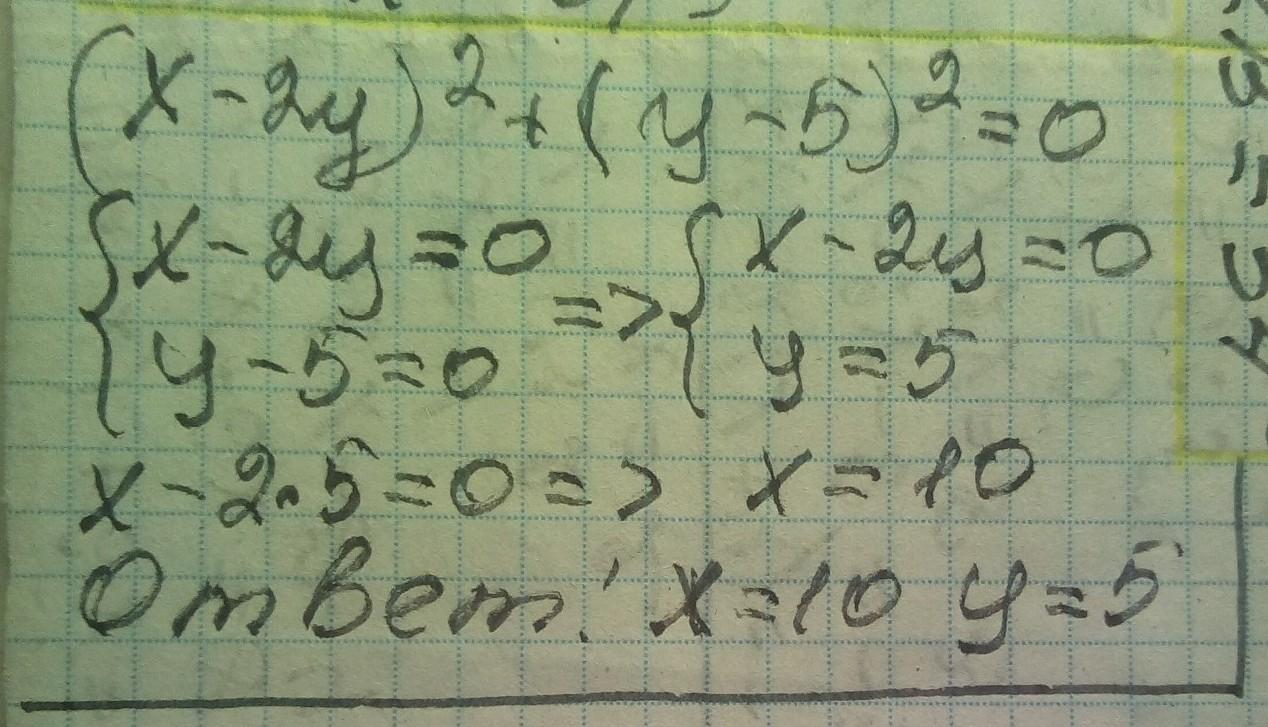 (x-2y)²+(y-5)²=0
{x-2y=0 => {x-2y=0
{y-5=0 {y=5
x-2·5=0 => x=10
Ответ: x=10 y=5